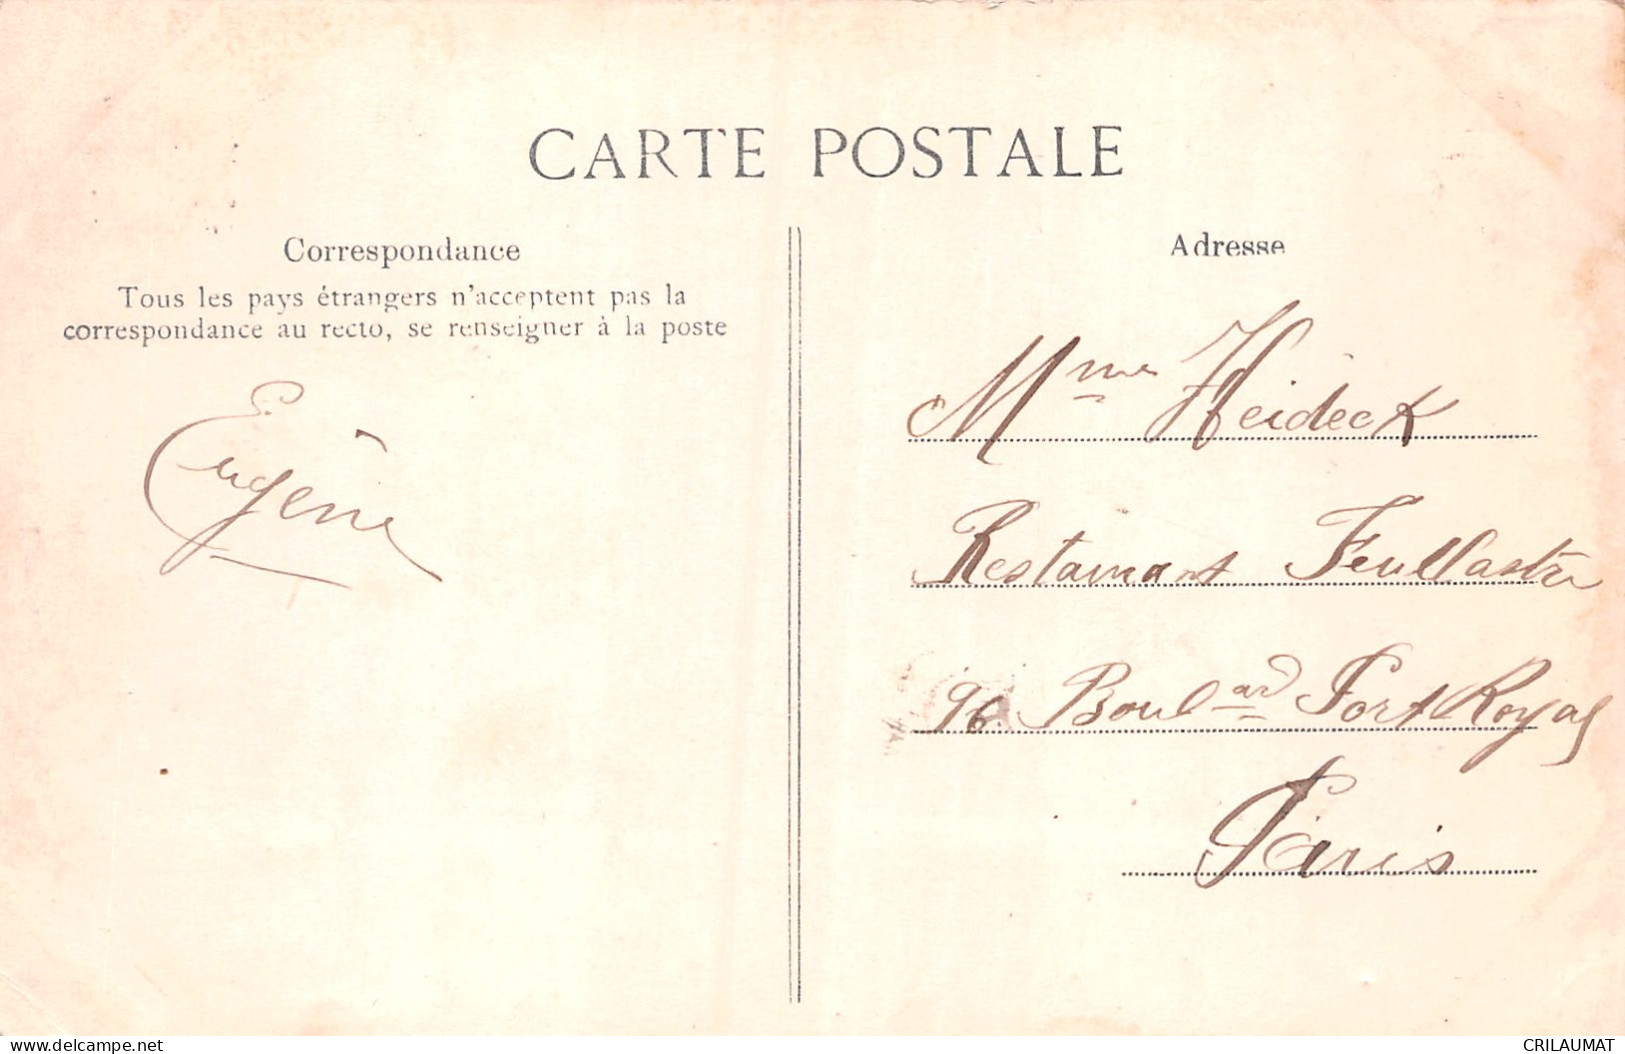 CARTE POSTALE
Correspondance
Tous les pays étrangers n'acceptent pas la
correspondance au recto, se renseigner à la poste
Eugène
Adresse
Mme Heideck
Restaurant Feullastre
96 Boulard Port Royal
Paris
delcampe.net
CRILAUMAT